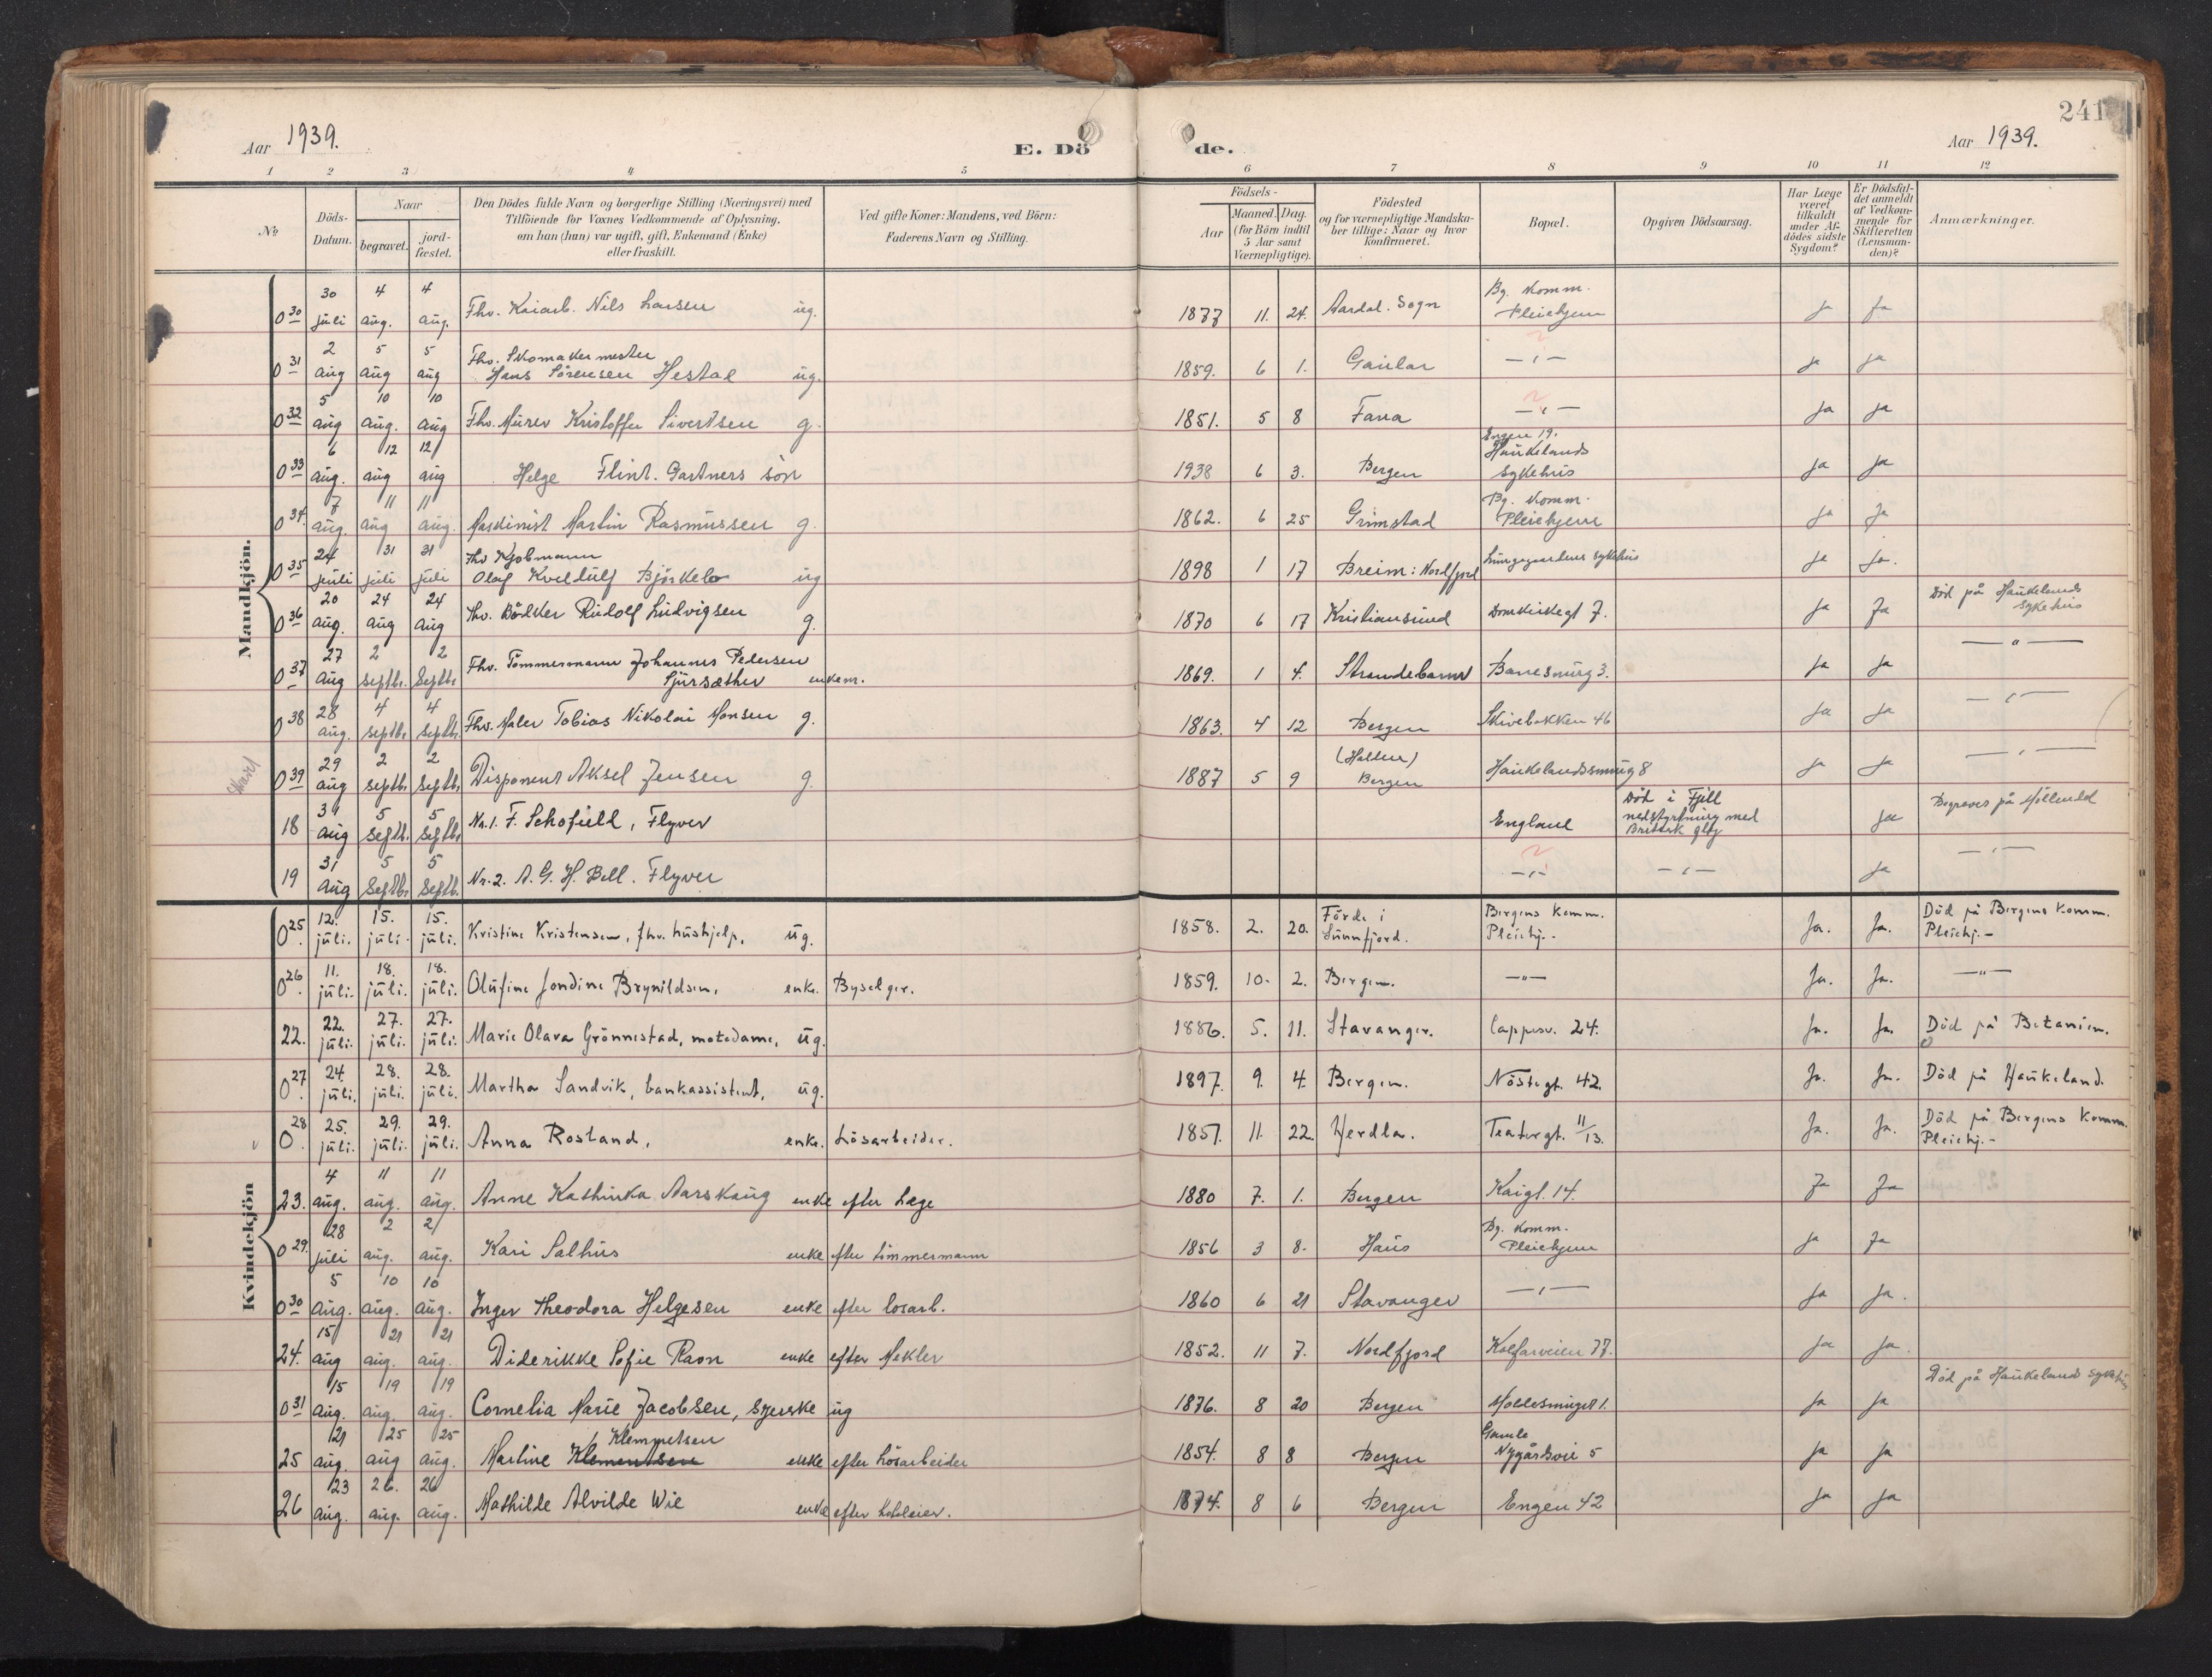 241
Aar 1939.
E. Döde.
Aar 1939.
1 2 3 4 5 6 7 8 9 10 11 12
No
Döds-Datum.
Naar
begravet.
jord-fæstet.
Den Dödes fulde Navn og borgerlige Stilling (Næringsvei) med
Tilföiende for Voxnes Vedkommende af Oplysning,
om han (hun) var ugift, gift, Enkemand (Enke)
eller fraskilt.
Ved gifte Koner: Mandens, ved Börn:
Faderens Navn og Stilling.
Födsels-
Aar
Maaned. Dag.
(for Börn indtil
5 Aar samt
Værnepligtige).
Födested
og for værnepligtige Mandska-
ber tillige: Naar og hvor
konfirmeret.
Bopæl.
Opgiven Dödsaarsag.
Har Læge
været
tilkaldt
under Af-
dödes sidste
Sygdom?
Er Dödsfal-
det anmeldt
af Vedkom-
mende for
Skifteretten
(Lensman-
den)?
Anmærkninger.
Mandkjön.
0 30 30 juli 4 aug. 4 aug. Fhv. Kaiarb. Nils Larsen ug. 1877 11. 24. Aardal. Sogn Bg. Komm. Pleiehjem Ja Ja
0 31 2 aug 5 aug 5 aug Fhv. Skomakermester Hans Sörensen Hestad ug. 1859. 6 1. Gaular — " — Ja Ja
0 32 5 aug 10 aug. 10 aug Fhv. Murer Kristoffer Sivertsen g. 1851. 5 8 Fana — " — Ja Ja
0 33 6 aug. 12 aug 12 aug Helge Flint. Gartners sön 1938 6 3. Bergen Engen 19. Haukelands sykehus Ja Ja
0 34. 7 aug. 11 aug 11 aug. Maskinist Martin Rasmussen g. 1862. 6 25 Grimstad Bg. Komm. Pleiehjem Ja Ja
0 35 24 juli 31 juli 31 juli Fhv Kjøbmann Olaf Kveldulf Bjørkelo ug 1898 1 17 Breim: Nordfjord Lungegaardens sykehus Ja Ja.
0 36 20 aug. 24 aug 24 aug Fhv. Bödker Rudolf Ludvigsen g. 1870 6 17 Kristiansund Domkirkegt 7. Ja Ja Död på Haukelands sykehus
0 37 27 aug 2 septbr. 2 Septbr Fhv. Tömmermann Johannes Pedersen Sjursæther enkem. 1869. 1 4. Strandebarm Banesmug 3. Ja Ja — " —
0 38 28 aug. 4 septbr. 4 septbr. Fhv. Maler Tobias Nikolai Monsen g. 1863. 4 12 Bergen Skivebakken 46 Ja Ja — " —
0 39 29 aug 2 septbr. 2 septbr. Disponent Aksel Jensen g 1887 5 9 (Halden) Bergen Haukelandssmug 8 Ja Ja — " —
18 31 aug 5 septb. 5 septbr Nr. 1. F. Schofield, Flyver England Död i Fjell nedstyrtning med Britisk fly Ja Begraves på Möllendal
19 31 aug 5 Septbr. 5 Septb. Nr. 2. A. G. H. Bell. Flyver — " — — " — Ja — " —
Kvindekjön
0 25. 12. juli. 15. juli. 15. juli. Kristine Kristensen, fhv. hushjelp, ug. 1858. 2. 20. Förde i Sunnfjord. Bergens Komm. Pleiehj.- Ja. Ja. Död på Bergens Komm. Pleiehj.-
0 26. 11. juli. 18. juli. 18. juli. Olufine Jondine Brynildsen, enke. Byselger. 1859. 10. 2. Bergen. — " — Ja. Ja. — " —
22. 22. juli. 27. juli. 27. juli. Marie Olava Grönnestad, motedame, ug. 1886. 5. 11. Stavanger. Cappesv. 24. Ja. Ja. Död på Betanien.
0 27. 24. juli. 28. juli. 28. juli. Martha Sandvik, bankassistent, ug. 1897. 9. 4. Bergen. Nöstegt. 42. Ja. Ja. Död på Haukeland.
0 28. 25. juli. 29. juli. 29. juli. Anna Rosland, enke. Lösarbeider. 1857. 11. 22. Herdla. Teatergt. 11/13. Ja. Ja. Död på Bergens Komm. Pleiehj.-
23. 4 aug. 11 aug. 11 aug. Anne Kathinka Aarskaug enke efter Læge 1880 7. 1. Bergen Kaigt. 14. Ja Ja
0 29. 28 juli 2 aug. 2 aug. Kari Salhus enke efter tömmermann 1856 3 8. Haus Bg. Komm. Pleiehjem Ja Ja
0 30 5 aug. 10 aug. 10 aug. Inger Theodora Helgesen enke efter losarb. 1860 6 21 Stavanger — " — Ja Ja.
24. 15 aug 21 aug. 21 aug. Diderikke Sofie Raon enke efter Mekler 1852. 11 7. Nordfjord Kalfarveien 77. Ja Ja.
0 31 15 aug. 19 aug. 19 aug. Cornelia Marie Jacobsen, syerske ug 1876. 8 20 Bergen Mollesmuget 1. Ja Ja Död på Haukeland sykehus
25 21 aug. 25 aug 25 aug. Martine Klementsen Klemmetsen enke efter Lösarbeider 1854. 8 8 Bergen Gamle Nygårdsvei 5 Ja Ja
26 23 aug. 26. aug. 26 aug. Mathilde Alvilde Wie enke efter hoteleier. 1874. 8 6 Bergen Engen 42 Ja Ja